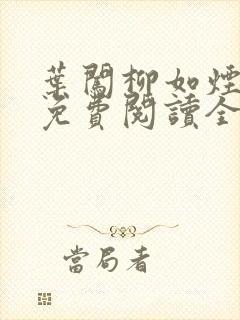 葉闖柳如煙
免費閱讀全
當局者